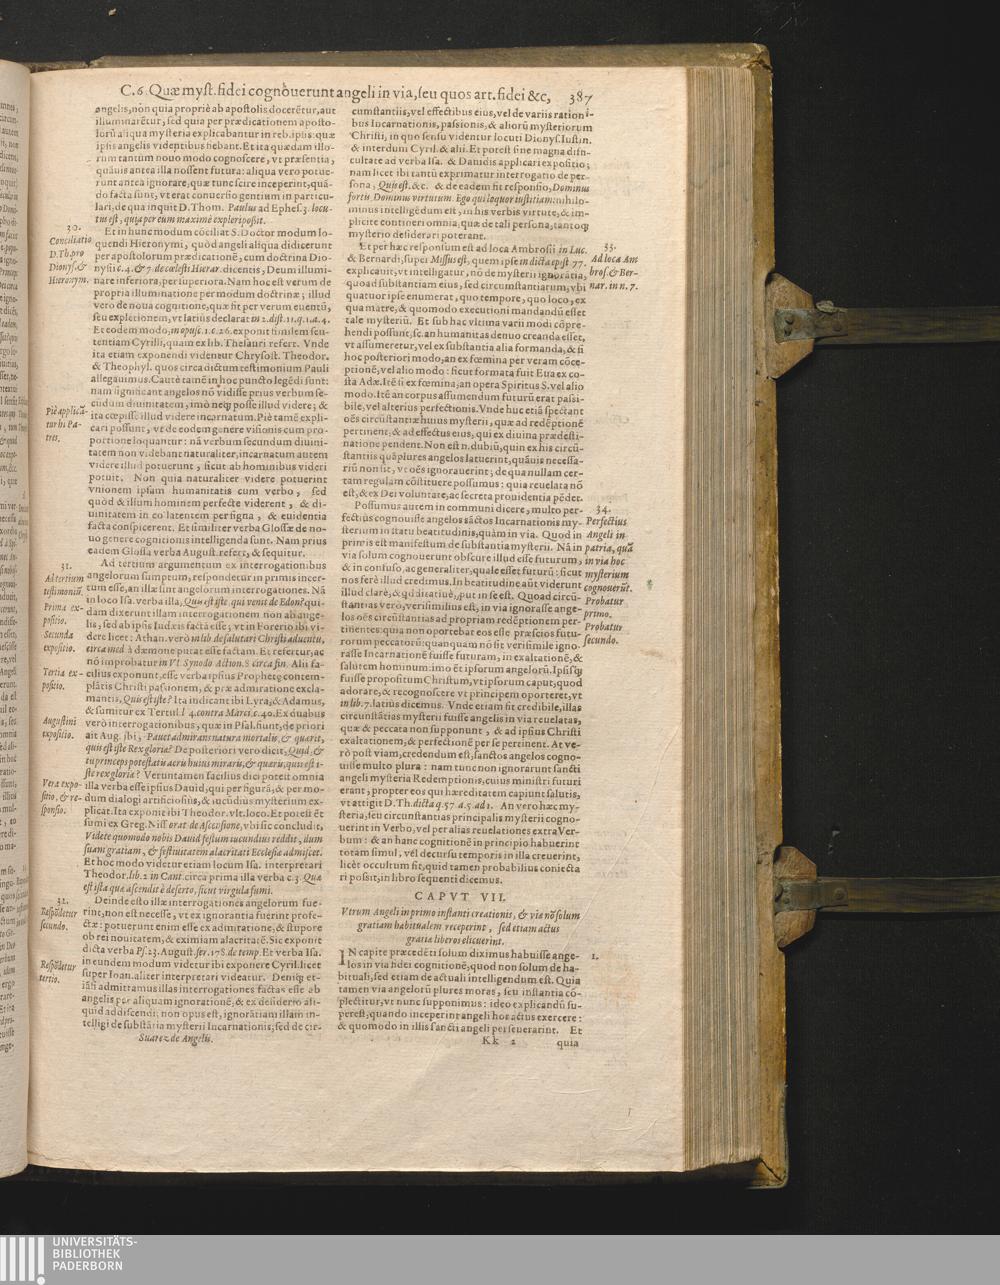 C. 6. Quæ myst. fidei cognouerunt angeli in via, seu quos art. fidei &c, 387
angelis, non quia propriè ab apostolis docerētur, aut
illuminarētur, sed quia per prædicationem aposto-
lorū aliqua mysteria explicabantur in reb. ipsis: quæ
ipsis angelis videntibus fiebant. Et ita quædam illo-
rum tantùm nouo modo cognoscere, vt præsentia,
quāuis antea illa nossent futura: aliqua vero potue-
runt antea ignorare, quæ tunc scire inceperint, quā-
do facta sunt, vt erat conuersio gentium in particu-
lari, de qua inquit D. Thom. Paulus ad Ephes. 3. locu-
tus est, quia per eum maximè expleri possit.
30.
Conciliatio
D. Th. pro
Dionys. &
Hieronym.
Et in hunc modum cōciliat S. Doctor modum lo-
quendi Hieronymi, quòd angeli aliqua didicerunt
per apostolorum prædicationē, cum doctrina Dio-
nysii c. 4. & 7. de cælesti Hierar. dicentis, Deum illumi-
nare inferiora, per superiora. Nam hoc est verum de
propria illuminatione per modum doctrinæ; illud
vero de noua cognitione, quæ fit per verum euentū,
seu expletionem, vt latiùs declarat in 2. dist. 11. q. 1. a. 4.
Et eodem modo, in opusc. 1. c. 26. exponit similem sen-
tentiam Cyrilli, quam ex lib. Thesauri refert. Vnde
ita etiam exponendi videntur Chrysost. Theodor.
& Theophyl. quos circa dictum testimonium Pauli
allegauimus. Cautè tamē in hoc puncto legēdi sunt:
nam significant angelos nō vidisse prius verbum se-
cúdum diuinitatem, imò neq; posse illud videre; &
ita cœpisse illud videre incarnatum. Piè tamē expli-
cari possunt, vt de eodem genere visionis cum pro-
portione loquantur: nā verbum secundum diuini-
tatem non videbant naturaliter, incarnatum autem
videre illud potuerunt, sicut ab hominibus videri
potuit. Non quia naturaliter videre potuerint
vnionem ipsam humanitatis cum verbo, sed
quòd & illum hominem perfecte viderent, & di-
uinitatem in eo latentem per signa, & euidentia
facta conspicerent. Et similiter verba Glossæ de no-
uo genere cognitionis intelligenda sunt. Nam prius
eadem Glossa verba August. refert, & sequitur.
Piè applicā-
tur hi Pa-
tres.
31.
Ad tertium
testimoniū.
Prima ex-
positio.
Secunda
expositio.
Tertia ex-
positio.
Augustini
expositio.
Vera expo-
sitio, & re-
sponsio.
Ad tertium argumentum ex interrogationibus
angelorum sumptum, respondetur in primis incer-
tum esse, an illæ sint angelorum interrogationes. Nā
in loco Isa. verba illa, Quis est iste, qui venit de Edon? qui-
dam dixerunt illam interrogationem non ab ange-
lis, sed ab ipsis Iudæis factā esse; vt in Forerio ibi vi-
dere licet: Athan. verò in lib. de salutari Christi aduentu,
circa med. à dæmone putat esse factam. Et refertur, ac
nō improbatur in VI. Synodo Action. 8. circa fin. Alii fa-
cilius exponunt, esse verba ipsius Prophetę contem-
plātis Christi passionem, & præ admiratione excla-
mantis, Quis est iste? Ita indicant ibi Lyra, & Adamus,
& sumitur ex Tertul. l. 4. contra Marci. c. 40. Ex duabus
verò interrogationibus, quæ in Psal. fiunt, de priori
ait Aug. ibi, Pauet admirans natura mortalis, & quærit,
quis est iste Rex gloriæ? De posteriori vero dicit, Quid, &
tu princeps potestatis aeris huius miraris, & quæris; quis est i-
ste rex gloriæ? Veruntamen facilius dici poteit omnia
illa verba esse ipsius Dauid, qui per figurā, & per mo-
dum dialogi artificiosiùs, & iucūdius mysterium ex-
plicat. Ita exponit ibi Theodor. vlt. loco. Et potest et
sumi ex Greg. Niss. orat. de Ascensione, vbi sic concludit,
Videte quomodo nobis Dauid festum iucundius reddit, dum
suam gratiam, & festiuitatem alacritati Ecclesiæ admiscet.
Et hoc modo videtur etiam locum Isa. interpretari
Theodor. lib. 2. in Cant. circa prima illa verba c. 3. Quæ
est ista quæ ascendit è deserto, sicut virgula fumi.
32.
Respōdetur
secundo.
Respōdetur
tertio.
Deinde esto illæ interrogationes angelorum fue-
rint, non est necesse, vt ex ignorantia fuerint profe-
ctæ: potuerunt enim esse ex admiratione, & stupore
ob rei nouitatem, & eximiam alacritatē. Sic exponit
dicta verba Ps. 23. August. ser. 178. de temp. Et verba Isa.
in eundem modum videtur ibi exponere Cyril. licet
super Ioan. aliter interpretari videatur. Deniq; et-
iāsi admittamus illas interrogationes factas esse ab
angelis per aliquam ignorationē, & ex desiderio ali-
quid addiscendi: non opus est, ignorātiam illam in-
telligi de substātia mysterii Incarnationis; sed de cir-
Suarez de Angelis.
cumstantiis, vel effectibus eius, vel de variis rationi-
bus Incarnationis, passionis, & aliorū mysteriorum
Christi, in quo sensu videntur locuti Dionys. Iustin.
& interdum Cyril. & alii. Et potest sine magna diffi-
cultate ad verba Isa. & Dauidis applicari expositio;
nam licet ibi tantū exprimatur interrogatio de per-
sona, Quis est. &c. & de eadem fit responsio, Dominus
fortis, Dominus virtutum. Ego qui loquor iustitiam: nihilo-
minus intelligēdum est, in his verbis virtute, & im-
plicite contineri omnia, quæ de tali persona, tantoq;
mysterio desiderari poterant.
33.
Ad loca Am
bros. & Ber-
nar. in n. 7.
Et per hæc responsum est ad loca Ambrosii in Luc.
& Bernardi, super Missus est, quem ipse in dicta epist. 77.
explicauit, vt intelligatur, nō de mysterii ignorātia,
quoad substantiam eius, sed circumstantiarum, vbi
quatuor ipse enumerat, quo tempore, quo loco, ex
qua matre, & quomodo executioni mandandū esset
tale mysteriū. Et sub hac vltima varii modi cōpre-
hendi possunt, sc. an humanitas denuo creanda esset,
vt assumeretur, vel ex substantia alia formanda, & si
hoc posteriori modo, an ex fœmina per veram cōce-
ptionē, vel alio modo: sicut formata fuit Eua ex co-
sta Adæ. Itē si ex fœmina, an opera Spiritus S. vel alio
modo. Itē an corpus assumendum futurū erat passi-
bile, vel alterius perfectionis. Vnde huc etiā spectant
oēs circūstantiæ huius mysterii, quæ ad redēptionē
pertinent, & ad effectus eius, qui ex diuina prædesti-
natione pendent. Non est n. dubiū, quin ex his circū-
stantiis quāplures angelos latuerint, quāuis necessa-
riū non sit, vt oēs ignorauerint; de qua nullam cer-
tam regulam cōstituere possumus: quia reuelata nō
est, & ex Dei voluntate, ac secreta prouidentia pēdet.
34.
Perfectiùs
Angeli in
patria, quā
in via hoc
mysterium
cognouerūt.
Probatur
primo.
Probatur
secundo.
Possumus autem in communi dicere, multo per-
fectius cognouisse angelos sāctos Incarnationis my-
sterium in statu beatitudinis, quàm in via. Quod in
primis est manifestum de substantia mysterii. Nā in
via solum cognouerunt obscure illud esse futurum,
& in confuso, ac generaliter, quale esset futurū: sicut
nos ferè illud credimus. In beatitudine aūt viderunt
illud clarè, & qd ditatiuè, put in se est. Quoad circū-
stantias verò, verisimilius est, in via ignorasse ange-
los oēs circūstantias ad propriam redēptionem per-
tinentes: quia non oportebat eos esse præscios futu-
rorum peccatorū: quanquam nō sit verisimile igno-
rasse Incarnationē fuisse futuram, in exaltationē, &
salutem hominum: imo ēt ipsorum angelorū. Ipsisq;
fuisse propositum Christum, vt ipsorum caput, quod
adorare, & recognoscere vt principem oporteret, vt
in lib. 7. latiùs dicemus. Vnde etiam fit credibile, illas
circunstātias mysterii fuisse angelis in via reuelatas,
quæ & peccata non supponunt, & ad ipsius Christi
exaltationem, & perfectionē per se pertinent. At ve-
rò post viam, credendum est, sanctos angelos cogno-
uisse multo plura: nam tunc non ignorarunt sancti
angeli mysteria Redemptionis, cuius ministri futuri
erant, propter eos qui hæreditatem capiunt salutis,
vt attigit D. Th. dicta q. 57. a. 5. ad 1. An vero hæc my-
steria, seu circunstantias principalis mysterii cogno-
uerint in Verbo, vel per alias reuelationes extra Ver-
bum: & an hanc cognitionē in principio habuerint
totam simul, vel decursu temporis in illa creuerint,
licèt occultum sit, quid tamen probabilius coniecta
ri possit, in libro sequenti dicemus.
CAPVT VII.
Vtrum Angeli in primo instanti creationis, & viæ nō solum
gratiam habitualem receperint, sed etiam actus
gratiæ liberos elicuerint.
1.
IN capite præcedēti solum diximus habuisse ange-
los in via fidei cognitionē, quod non solum de ha-
bituali, sed etiam de actuali intelligendum est. Quia
tamen via angelorū plures moras, seu instantia cō-
plectitur, vt nunc supponimus: ideo explicandū su-
perest, quando inceperint angeli hos actus exercere:
& quomodo in illis sancti angeli perseuerarint. Et
Kk 2 quia
UNIVERSITÄTS-
BIBLIOTHEK
PADERBORN